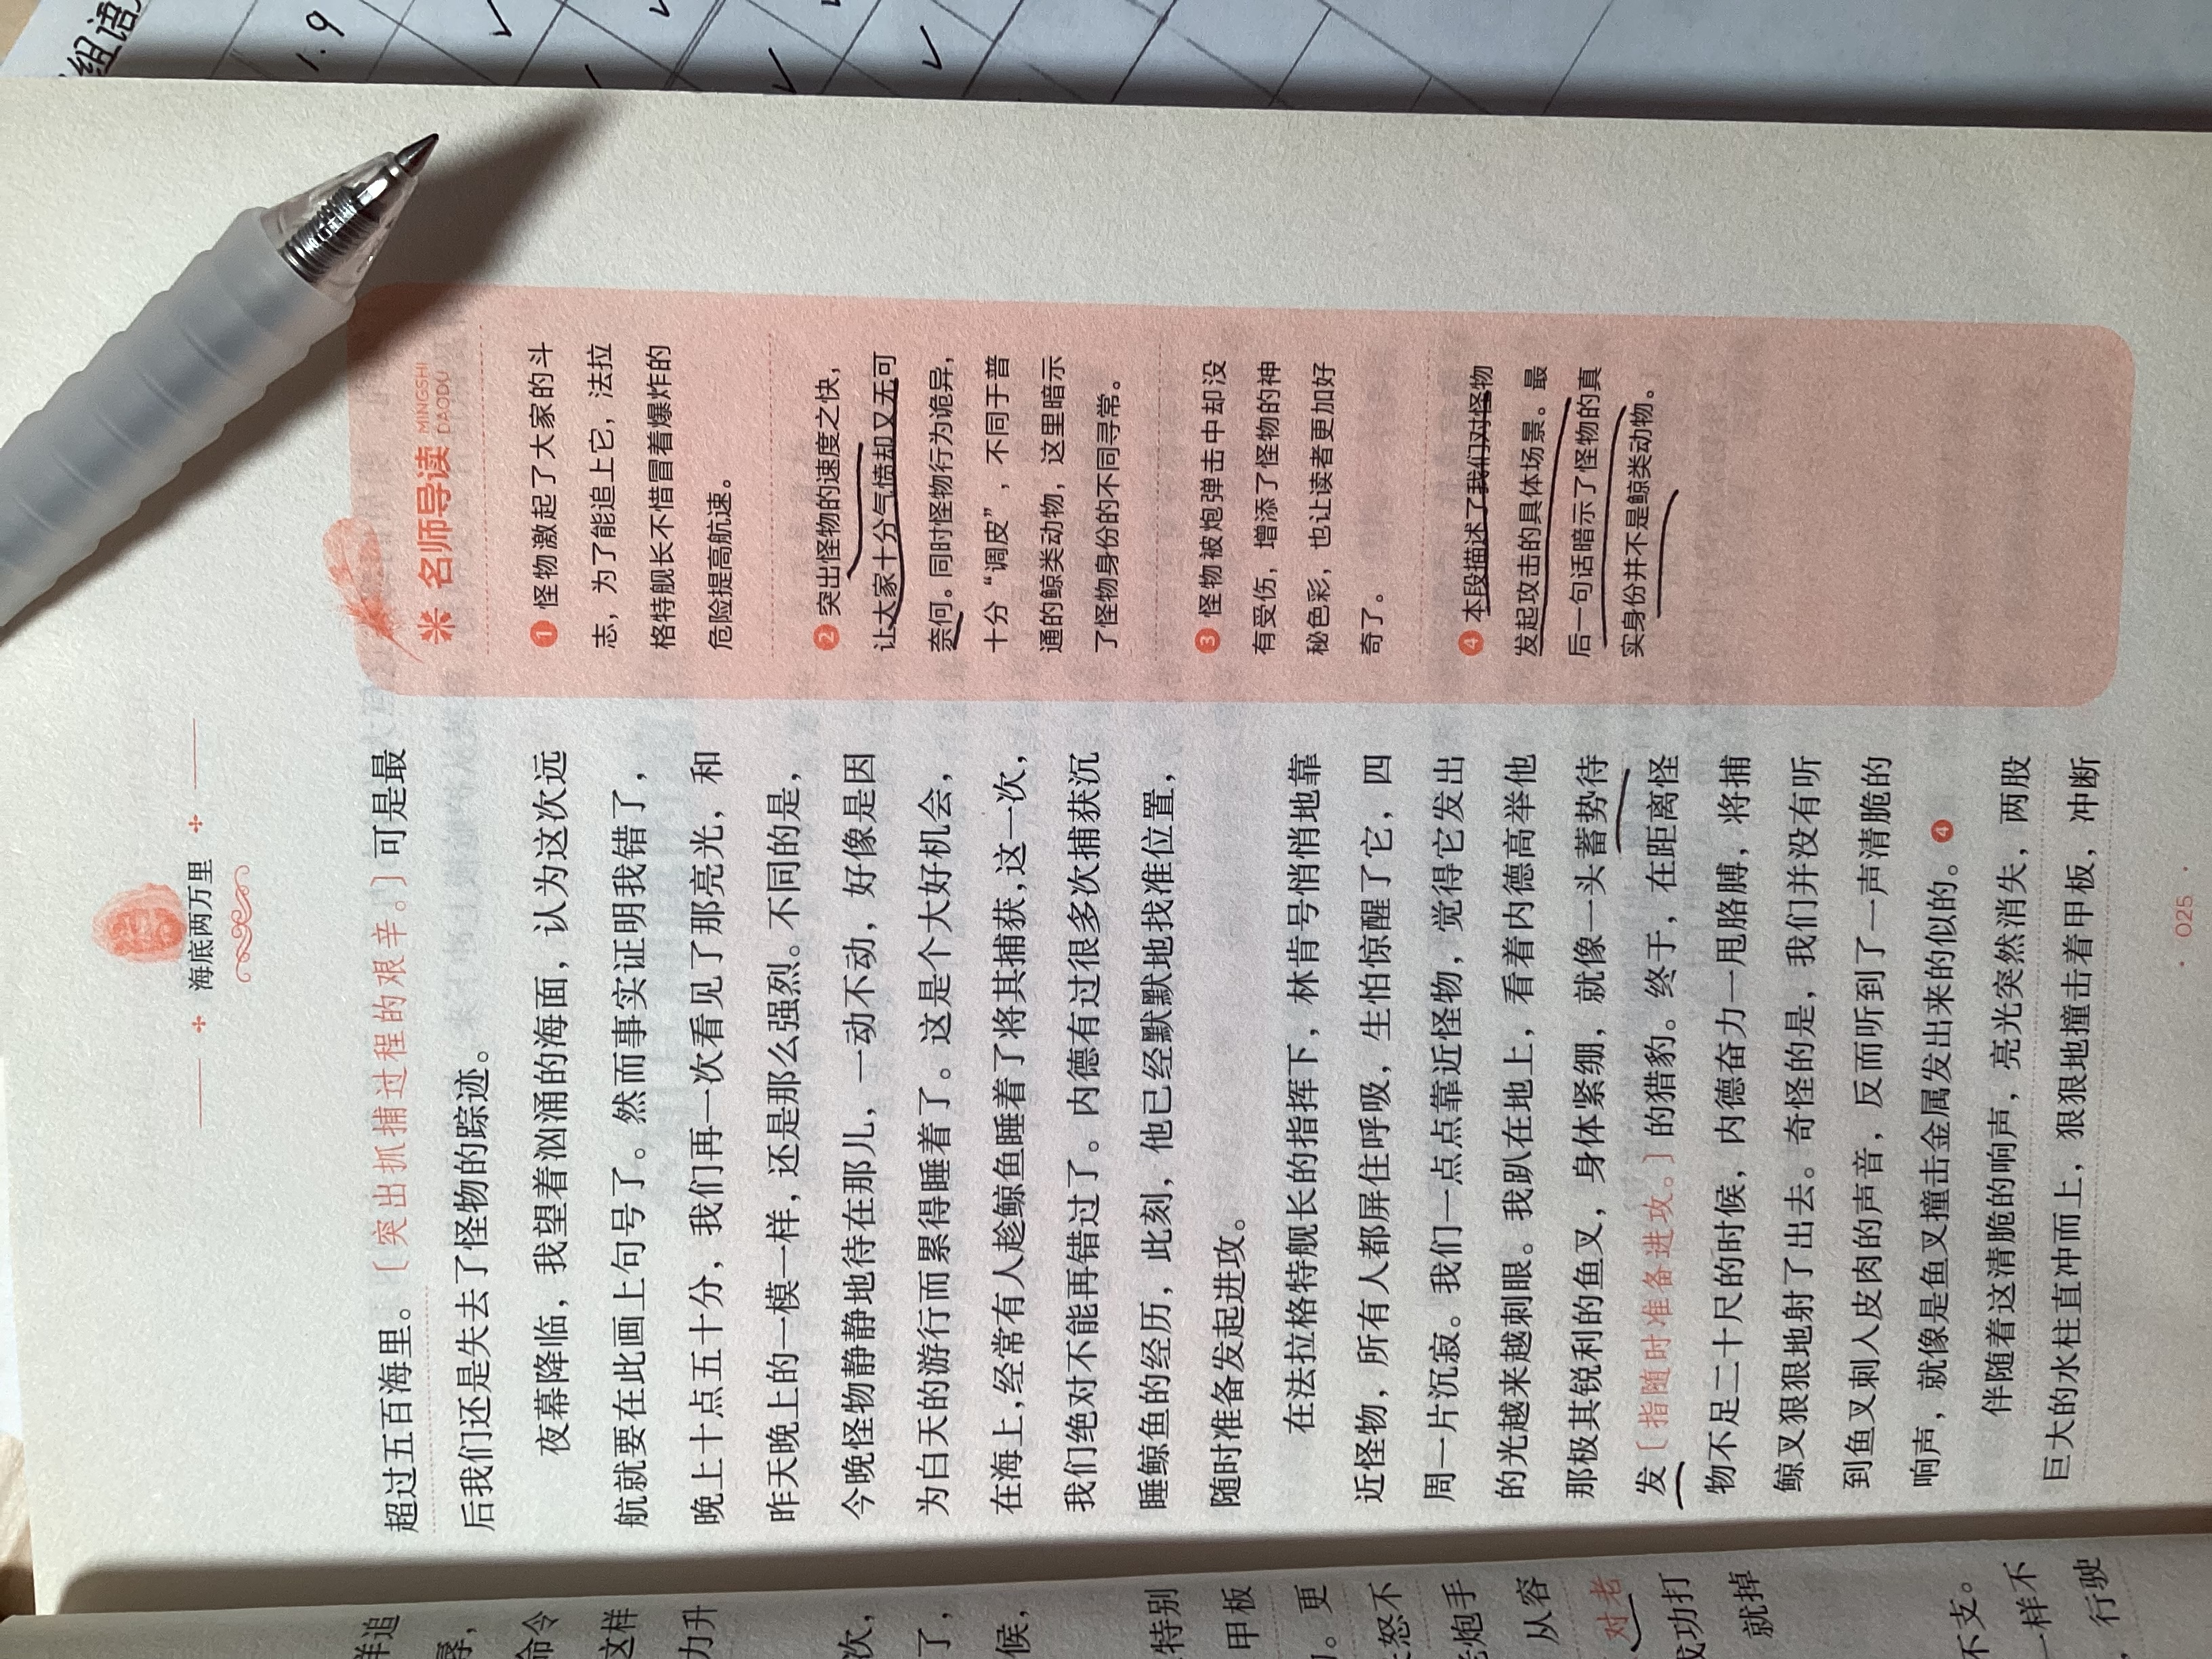 海底两万里
超过五百海里。〔突出抓捕过程的艰辛。〕可是最
后我们还是失去了怪物的踪迹。
夜幕降临，我望着汹涌的海面，认为这次远
航就要在此画上句号了。然而事实证明我错了，
晚上十点五十分，我们再一次看见了那亮光，和
昨天晚上的一模一样，还是那么强烈。不同的是，
今晚怪物静静地待在那儿，一动不动，好像是因
为白天的游行而累得睡着了。这是个大好机会，
在海上，经常有人趁鲸鱼睡着了将其捕获，这一次，
我们绝对不能再错过了。内德有过很多次捕获沉
睡鲸鱼的经历，此刻，他已经默默地找准位置，
随时准备发起进攻。
在法拉格特舰长的指挥下，林肯号悄悄地靠
近怪物，所有人都屏住呼吸，生怕惊醒了它，四
周一片沉寂。我们一点点靠近怪物，觉得它发出
的光越来越刺眼。我趴在地上，看着内德高举他
那极其锐利的鱼叉，身体紧绷，就像一头蓄势待
发〔指随时准备进攻。〕的猎豹。终于，在距离怪
物不足二十尺的时候，内德奋力一甩胳膊，将捕
鲸叉狠狠地射了出去。奇怪的是，我们并没有听
到鱼叉刺入皮肉的声音，反而听到了一声清脆的
响声，就像是鱼叉撞击金属发出来的似的。❹
伴随着这清脆的响声，亮光突然消失，两股
巨大的水柱直冲而上，狠狠地撞击着甲板，冲断
名师导读 MINGSHI
DAODU
❶ 怪物激起了大家的斗
志，为了能追上它，法拉
格特舰长不惜冒着爆炸的
危险提高航速。
❷ 突出怪物的速度之快，
让大家十分气愤却又无可
奈何。同时怪物行为诡异，
十分“调皮”，不同于普
通的鲸类动物，这里暗示
了怪物身份的不同寻常。
❸ 怪物被炮弹击中却没
有受伤，增添了怪物的神
秘色彩，也让读者更加好
奇了。
❹ 本段描述了我们对怪物
发起攻击的具体场景。最
后一句话暗示了怪物的真
实身份并不是鲸类动物。
· 025 ·
样追
命令
这样
力升
次，
了，
候，
特别
甲板
更
怒不
老炮手
从容
对老
成功打
就掉
不支。
一样不
行驶
组语
1.9